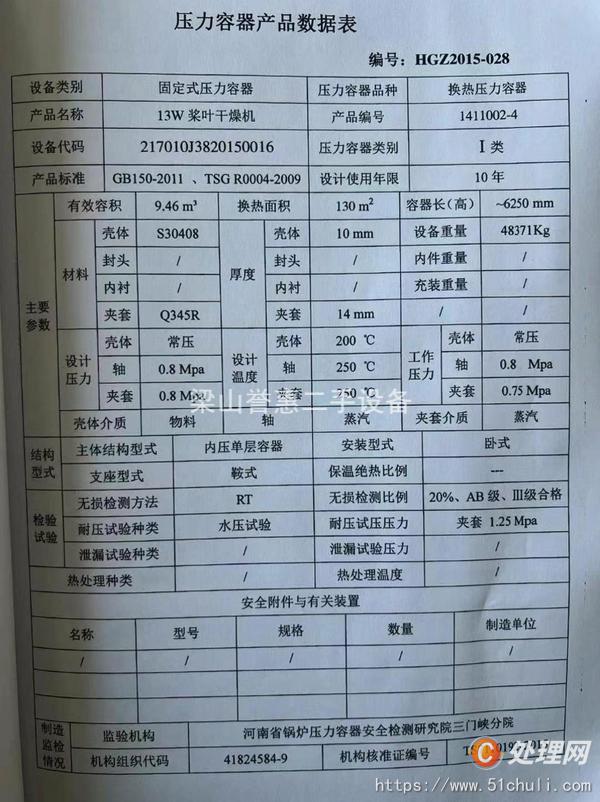 压力容器产品数据表
编号：HGZ2015-028
设备类别 固定式压力容器 压力容器品种 换热压力容器
产品名称 13W 桨叶干燥机 产品编号 1411002-4
设备代码 217010J3820150016 压力容器类别 Ⅰ 类
产品标准 GB150-2011 、TSG R0004-2009 设计使用年限 10 年
主要参数 有效容积 9.46 m³ 换热面积 130 m² 容器长（高） ~6250 mm
材料 壳体 S30408 厚度 壳体 10 mm 设备重量 48371Kg
封头 / 封头 / 内件重量 /
内衬 / 内衬 / 充装重量 /
夹套 Q345R 夹套 14 mm / /
设计压力 壳体 常压 设计温度 壳体 200 ℃ 工作压力 壳体 常压
轴 0.8 Mpa 轴 250 ℃ 轴 0.8 Mpa
夹套 0.8 Mpa 夹套 250 ℃ 夹套 0.75 Mpa
梁山誉惠二手设备
壳体介质 物料 轴 蒸汽 夹套介质 蒸汽
结构型式 主体结构型式 内压单层容器 安装型式 卧式
支座型式 鞍式 保温绝热比例 ---
检验试验 无损检测方法 RT 无损检测比例 20%、AB 级、Ⅲ级合格
耐压试验种类 水压试验 耐压试压压力 夹套 1.25 Mpa
泄漏试验种类 / 泄漏试验压力 /
热处理种类 / 热处理温度 /
安全附件与有关装置
名称 型号 规格 数量 制造单位
/ / / / /
制造监检情况 监验机构 河南省锅炉压力容器安全检测研究院三门峡分院
机构组织代码 41824584-9 机构核准证编号
处理网
https://www.51chuli.com